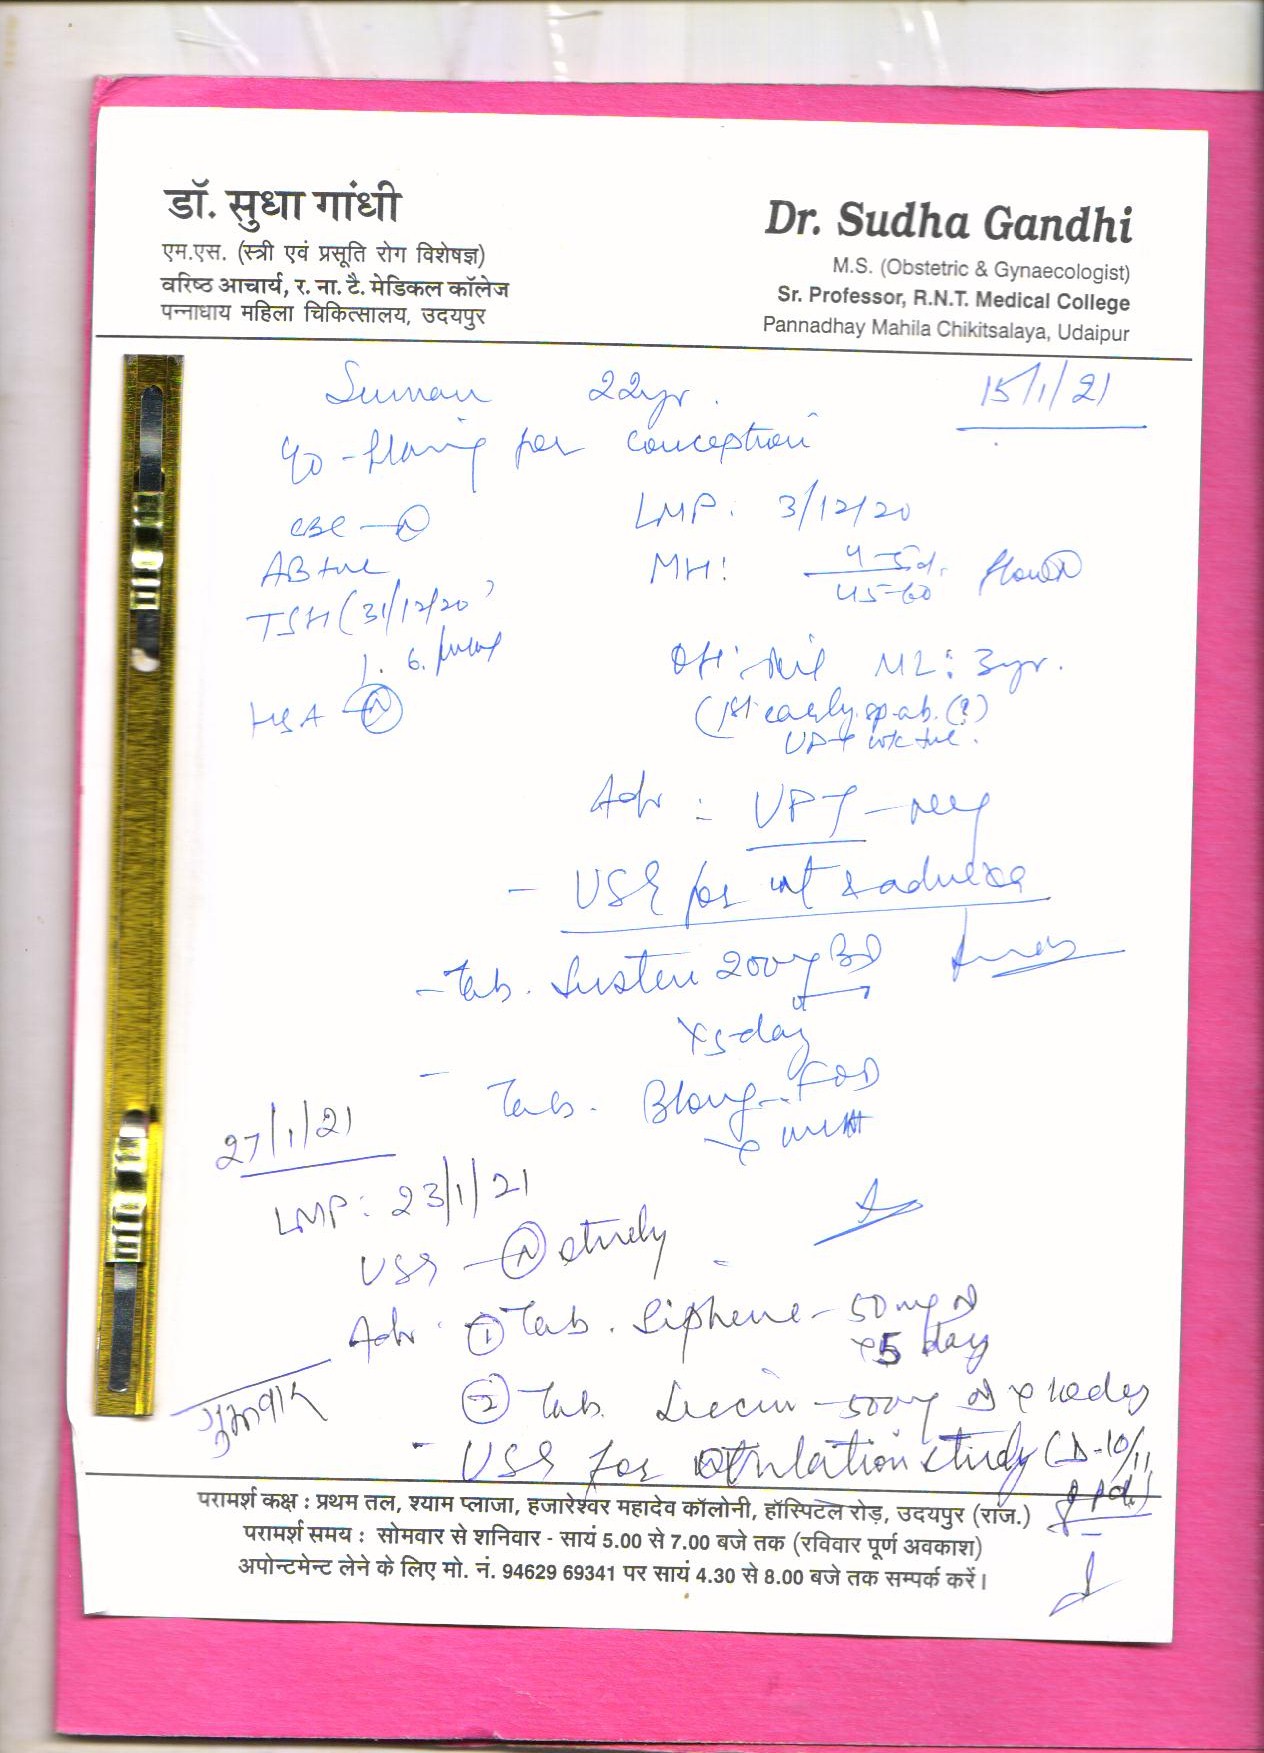 डॉ. सुधा गांधी
एम.एस. (स्त्री एवं प्रसूति रोग विशेषज्ञ)
वरिष्ठ आचार्य, र. ना. टै. मेडिकल कॉलेज
पन्नाधाय महिला चिकित्सालय, उदयपुर
Dr. Sudha Gandhi
M.S. (Obstetric & Gynaecologist)
Sr. Professor, R.N.T. Medical College
Pannadhay Mahila Chikitsalaya, Udaipur
Suman 22yr. 15/1/21
for conception
CBC - N
LMP: 3/12/20
AB +ve
MH: 4-5d. flow N
45-60
TSH (31/12/20)
1.6
OH: Nil ML: 3yr.
HSA N
(1st early sp. ab. (?)
UPT +ve.
Adv: UPT - neg
- USG for ut & adnexa
- Tab. Susten 200mg BD
x 5 day
- Tab. OD
27/1/21
LMP: 23/1/21
USG - N study
Adv. 1 Tab. Siphene - 50mg
x 5 day
2 Tab. - 500mg x 10 day
गुरुवार
- USG for Ovulation study (D-10/11
परामर्श कक्ष : प्रथम तल, श्याम प्लाजा, हजारेश्वर महादेव कॉलोनी, हॉस्पिटल रोड़, उदयपुर (राज.)
परामर्श समय : सोमवार से शनिवार - सायं 5.00 से 7.00 बजे तक (रविवार पूर्ण अवकाश)
अपोन्टमेन्ट लेने के लिए मो. नं. 94629 69341 पर सायं 4.30 से 8.00 बजे तक सम्पर्क करें।